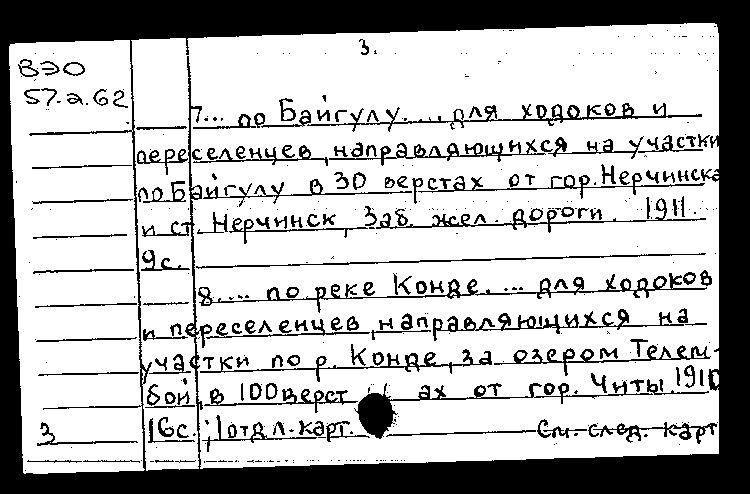 3.
ВЭО
57.а.62
7... по Байгулу.... для ходоков и
переселенцев, направляющихся на участки
по Байгулу в 30 верстах от гор. Нерчинска
и ст. Нерчинск, Заб. жел. дороги. 1911.
9с.
8.... по реке Конде.... для ходоков
и переселенцев, направляющихся на
участки по р. Конде, за озером Телем-
бой, в 100 верст ах от гор. Читы. 1910
3 16с.; 1 отд л. карт. См. след. карт